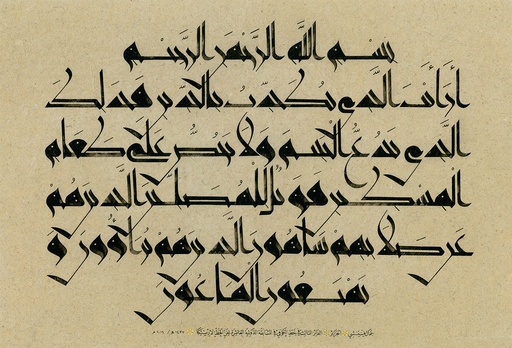 بسم الله الرحمن الرحيم
أرأيت الذي يكذب بالدين فذلك
الذي يدع اليتيم ولا يحض على طعام
المسكين فويل للمصلين الذين هم
عن صلاتهم ساهون الذين هم يراؤون و
يمنعون الماعون